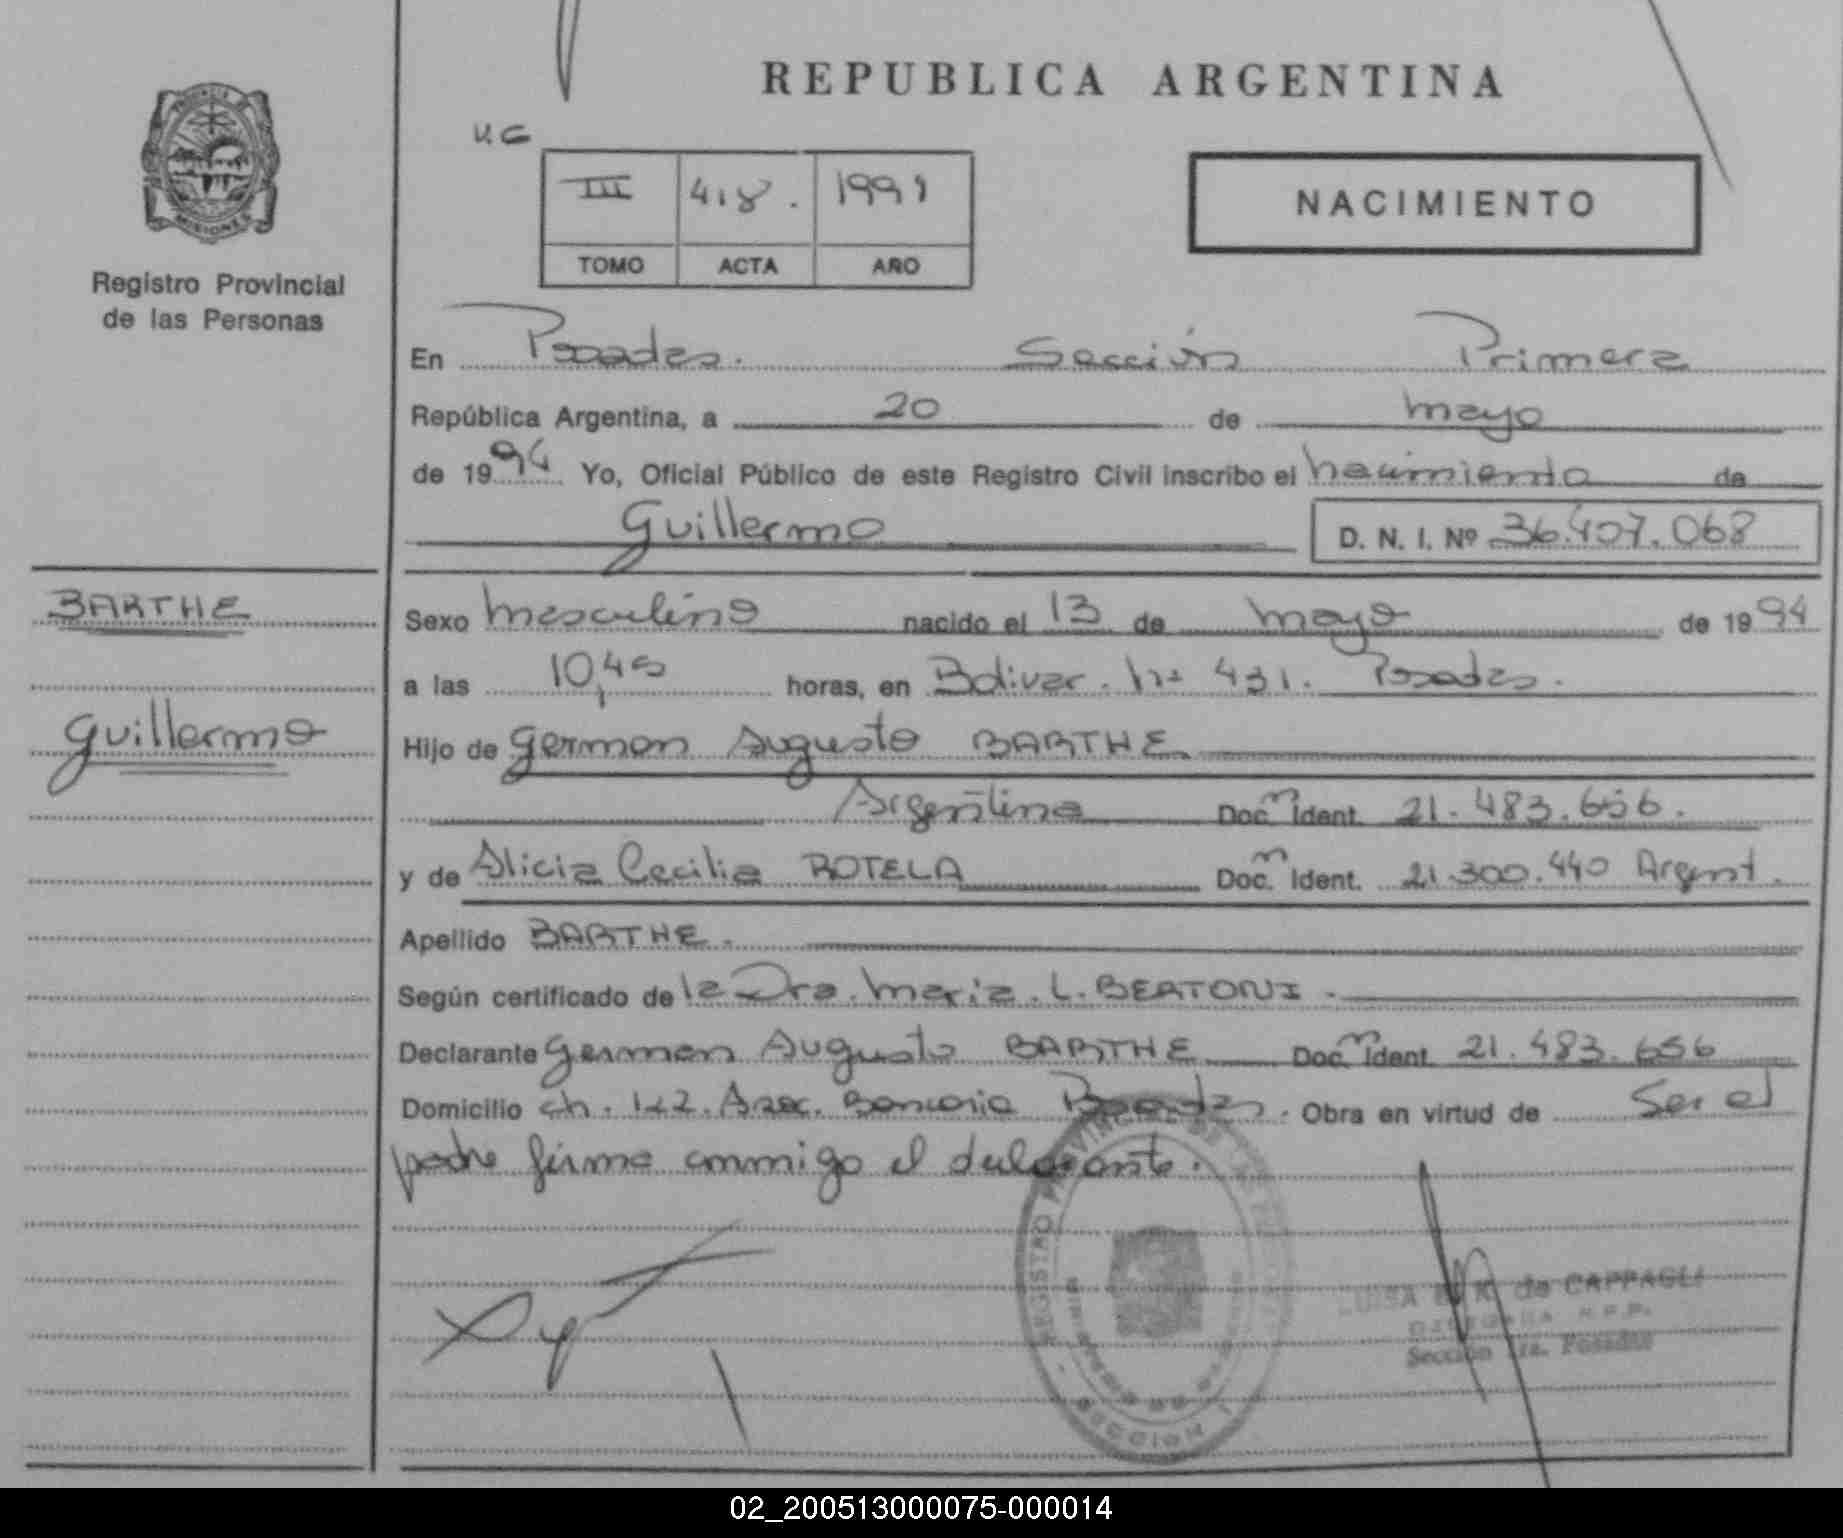 REPUBLICA ARGENTINA
MISIONES
Registro Provincial
de las Personas
III 418. 1991
TOMO ACTA AÑO
NACIMIENTO
En Posadas. Sección Primera
República Argentina, a 20 de mayo
de 1994 Yo, Oficial Público de este Registro Civil inscribo el nacimiento de
Guillermo D. N. I. Nº 36.407.068
BARTHE
Guillermo
Sexo masculino nacido el 13 de mayo de 1994
a las 10,45 horas, en Bolivar. nº 431. Posadas.
Hijo de German Augusto BARTHE
Argentina Doc. Ident. 21.483.656.
y de Alicia Cecilia ROTELA Doc. Ident. 21.300.440 Argent.
Apellido BARTHE.
Según certificado de la Dra. Maria. L. BERTONI.
Declarante German Augusto BARTHE Doc. Ident. 21.483.656
Domicilio ch. 122. Asoc. Bancaria Posadas. Obra en virtud de Ser el
padre firma conmigo el declarante.
REGISTRO PROVINCIAL DE LAS PERSONAS
SECCION 1
LUISA de CAPPAGLI
DELEGADA R.P.P.
Sección 1ra. Posadas
02_200513000075-000014